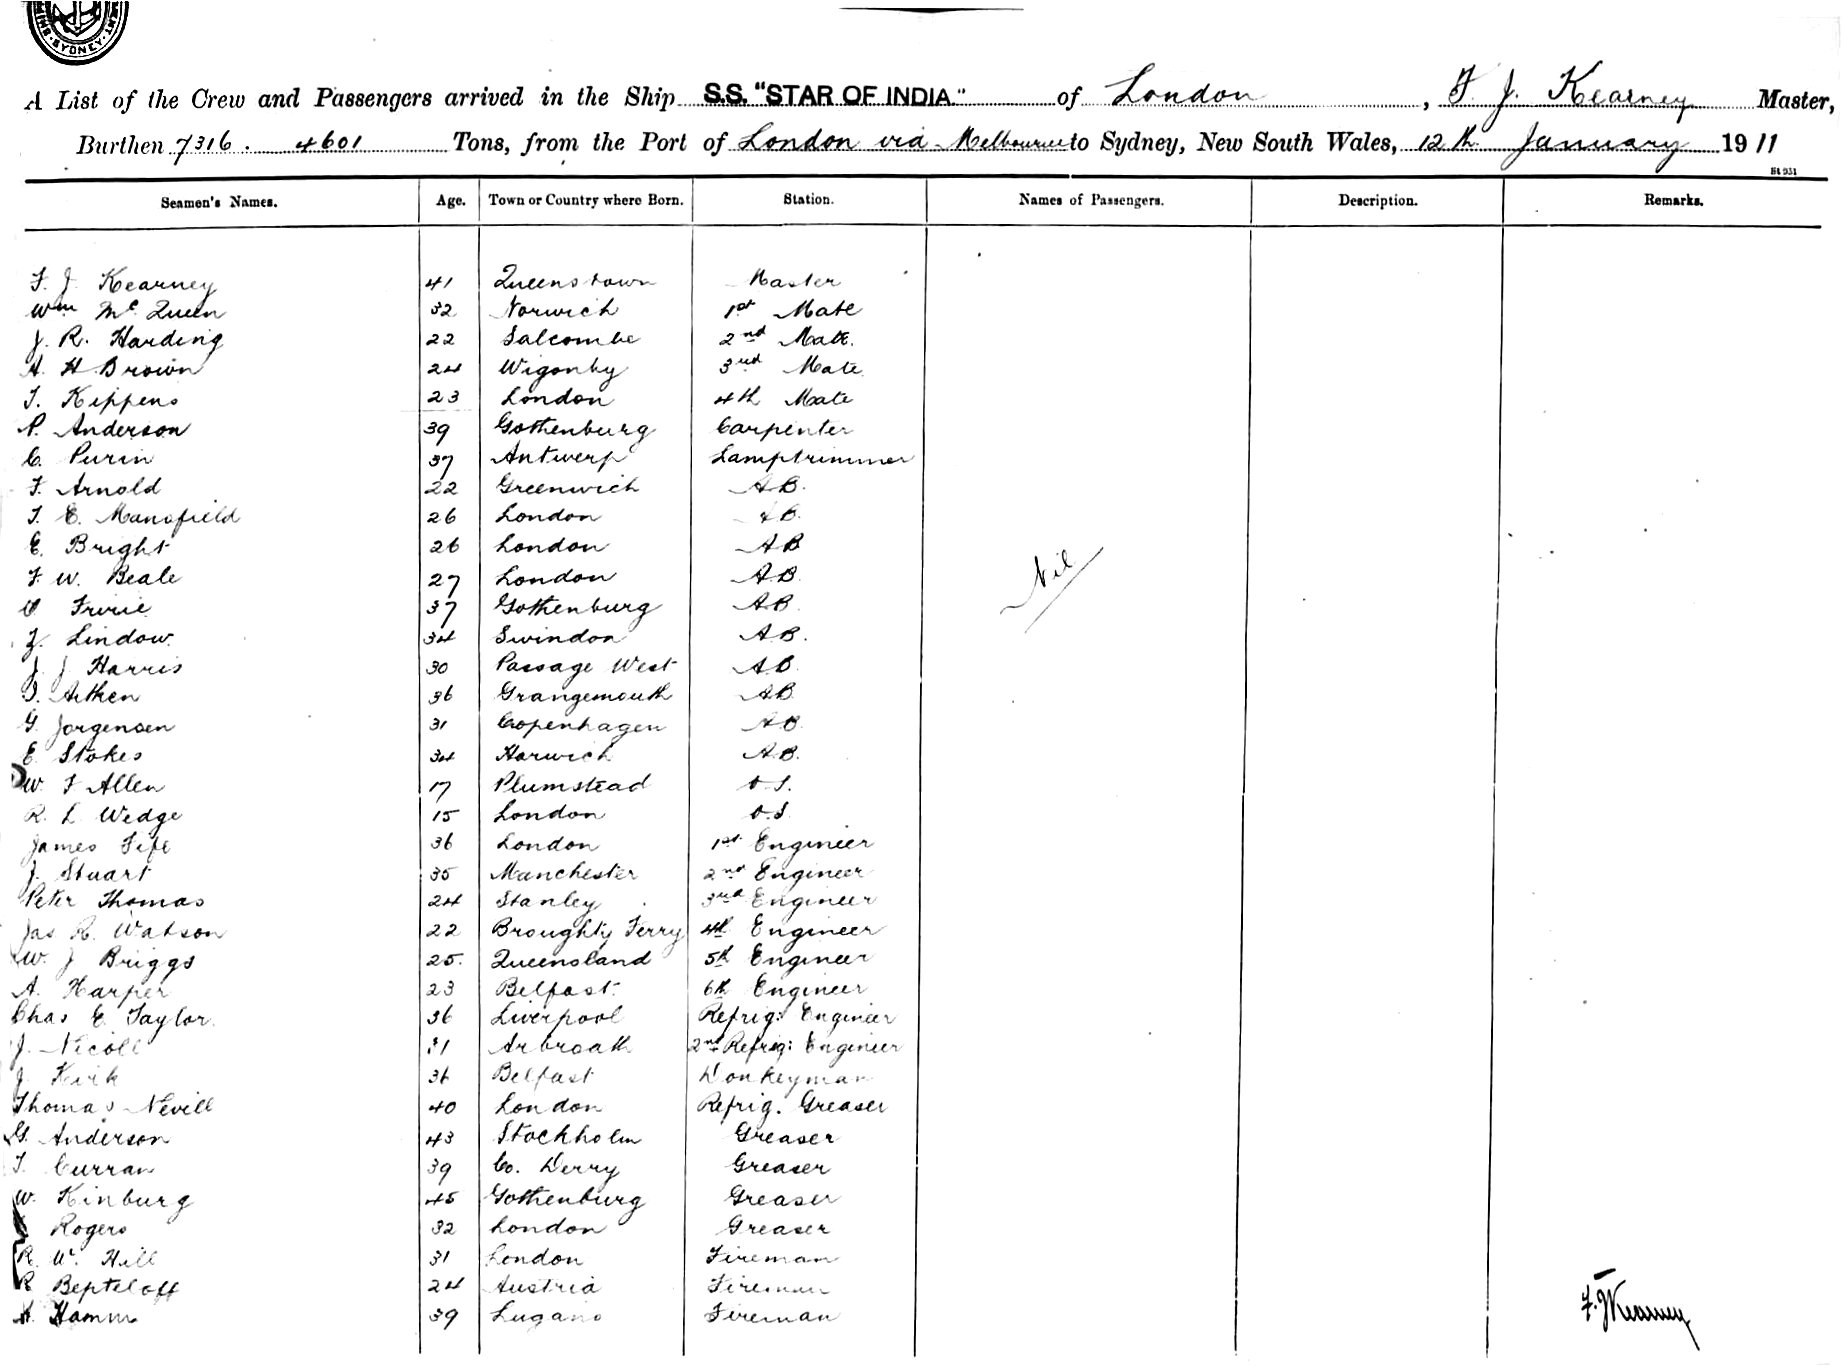 SYDNEY
A List of the Crew and Passengers arrived in the Ship S.S. "STAR OF INDIA" of London, F. J. Kearney Master,
Burthen 7316. 4601 Tons, from the Port of London via Melbourne to Sydney, New South Wales, 12th January 1911
St 931
Seamen's Names. Age. Town or Country where Born. Station. Names of Passengers. Description. Remarks.
F. J. Kearney 41 Queenstown Master
Wm McQueen 32 Norwich 1st Mate
J. R. Harding 22 Salcombe 2nd Mate.
A. H Brown 24 Wigonby 3rd Mate.
T. Kippens 23 London 4th Mate
P. Anderson 39 Gothenburg Carpenter
C. Purin 37 Antwerp Lamptrimmer
F. Arnold 22 Greenwich A.B.
T. E. Mansfield 26 London A.B.
E. Bright 26 London A.B
F. W. Beale 27 London A.B.
37 Gothenburg A.B.
Lindow. 34 Swindon A.B.
J. J Harris 30 Passage West A.B
Aitken 36 Grangemouth A.B.
G. Jorgensen 31 Copenhagen A.B.
E. Stokes 34 Harwich A.B.
W. F Allen 17 Plumstead O.S.
R. L Wedge 15 London O.S.
James Fife 36 London 1st Engineer
J. Stuart 35 Manchester 2nd Engineer
Peter Thomas 24 Stanley 3rd Engineer
Jas R. Watson 22 Broughty Ferry 4th Engineer
W. J Briggs 25. Queensland 5th Engineer
A. Harper 23 Belfast. 6th Engineer
Chas E. Taylor. 36 Liverpool Refrig: Engineer
J. Nicoll 31 Arbroath 2nd Refrig: Engineer
J. Kirk 36 Belfast Donkeyman
Thomas Nevill 40 London Refrig. Greaser
G. Anderson 43 Stockholm Greaser
T. Curran 39 Co. Derry Greaser
W. Kinburg 45 Gothenburg Greaser
Rogers 32 London Greaser
R. W. Hill 31 London Fireman
R Bepteloff 24 Austria Fireman
A. Hamm 39 Lugano Fireman
Nil
F. J Kearney